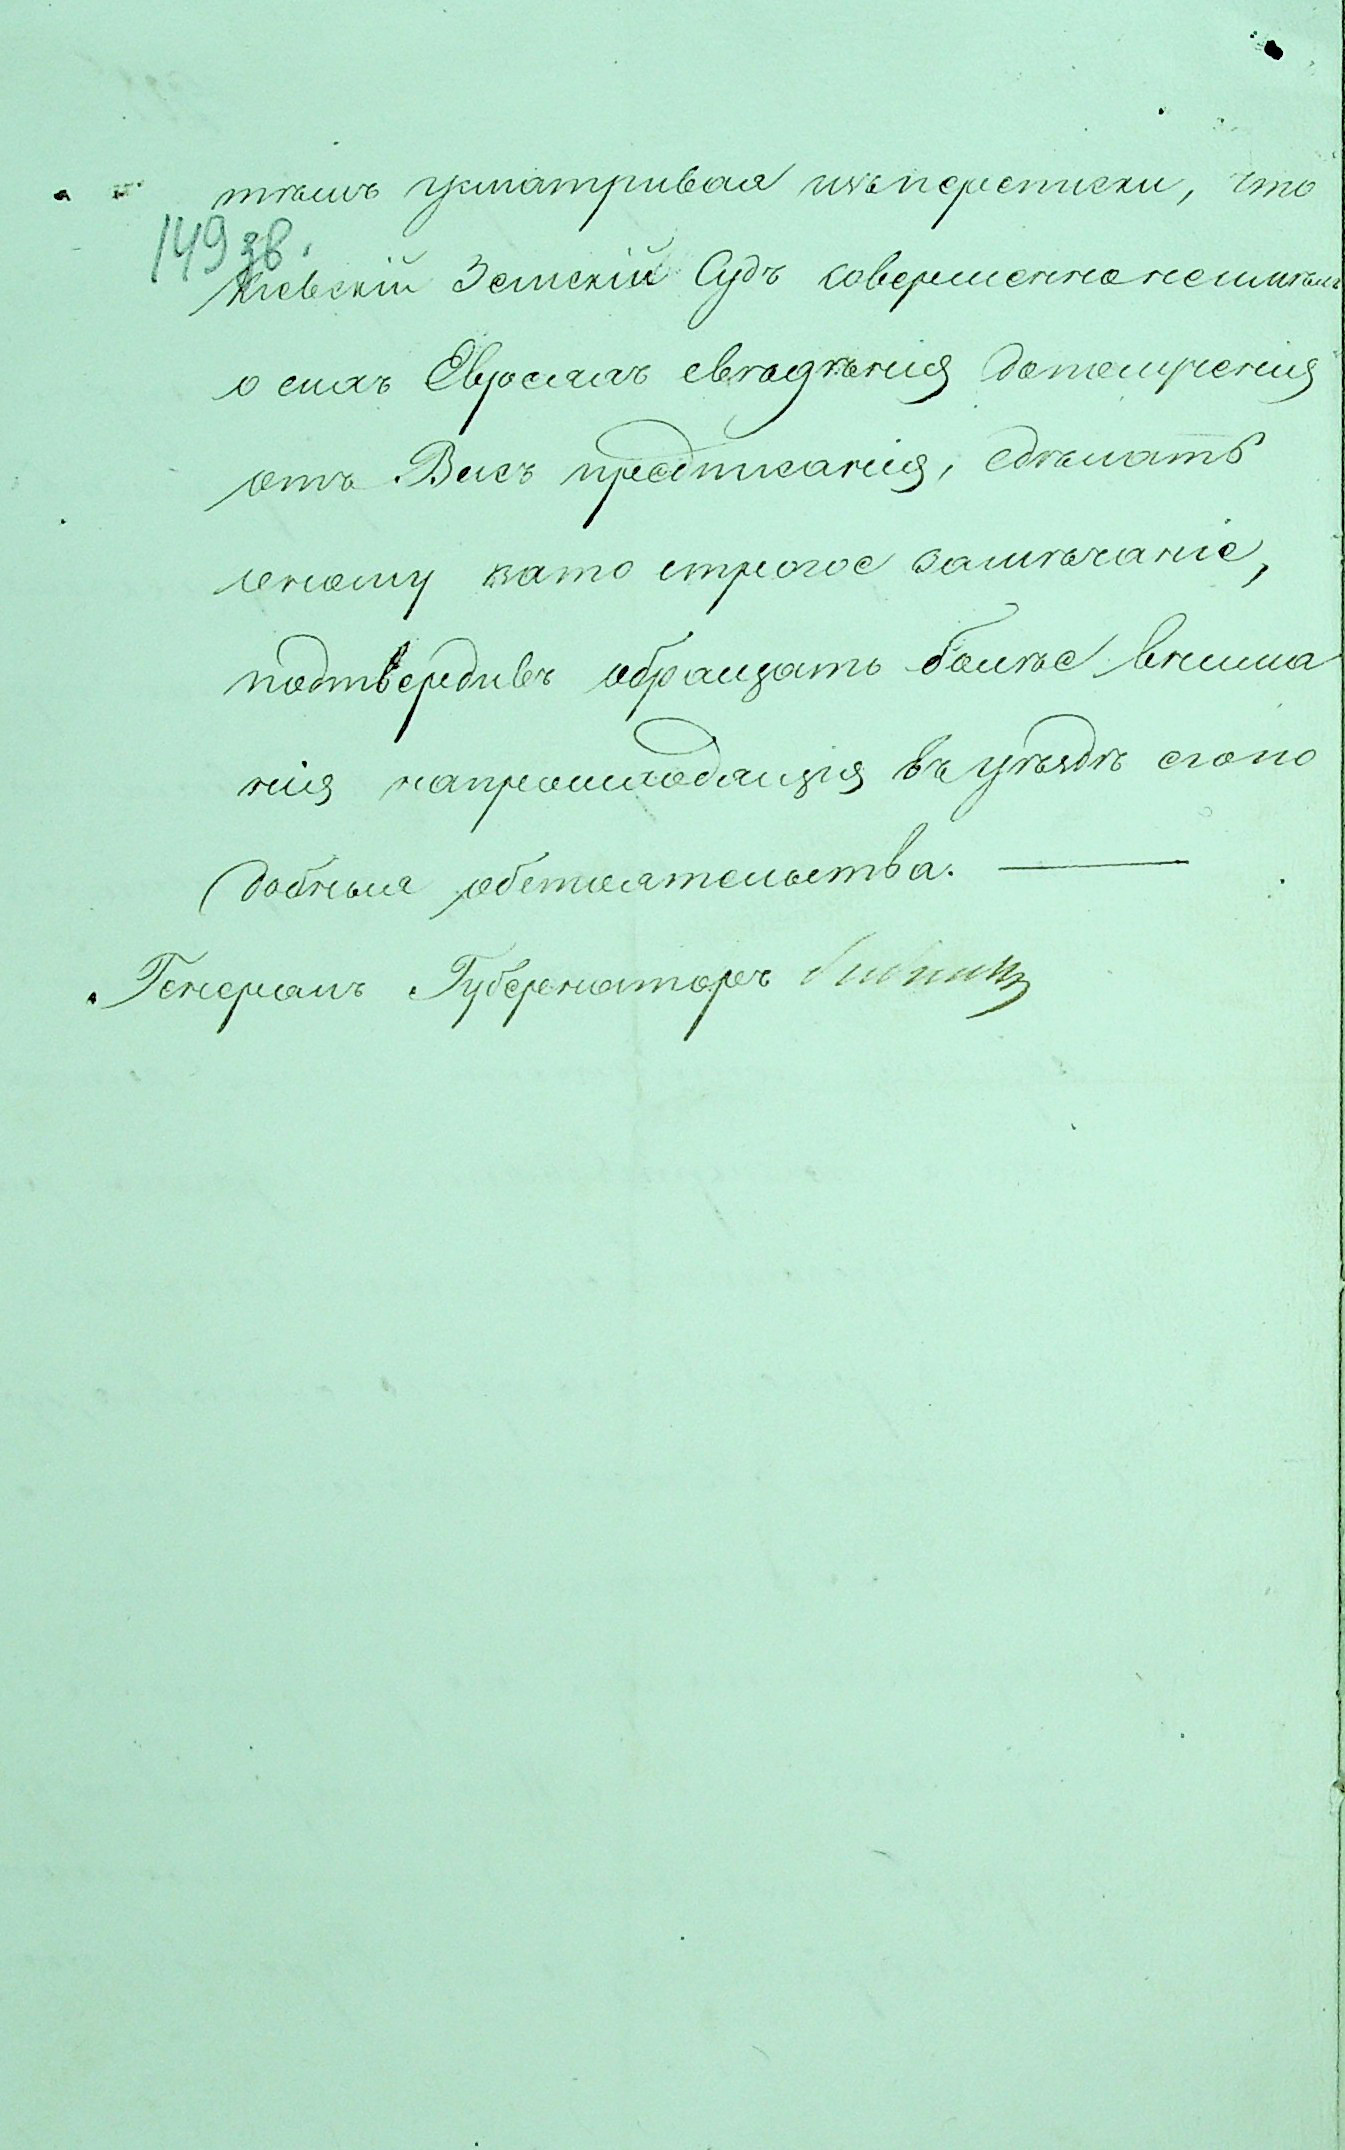 тѣмъ усматривая изъ переписки, что
149 зв.
Кіевскій Земскій Судъ совершенно неимѣлъ
о сихъ Евреяхъ свѣдѣнія дополученія
отъ Васъ предписанія, сдѣлать
оному зато строгое замѣчаніе,
подтвердивъ обращать болѣе внима
нія на происходящія въ уѣздѣ симъ по
добныя обстоятельства. —
Генералъ Губернаторъ